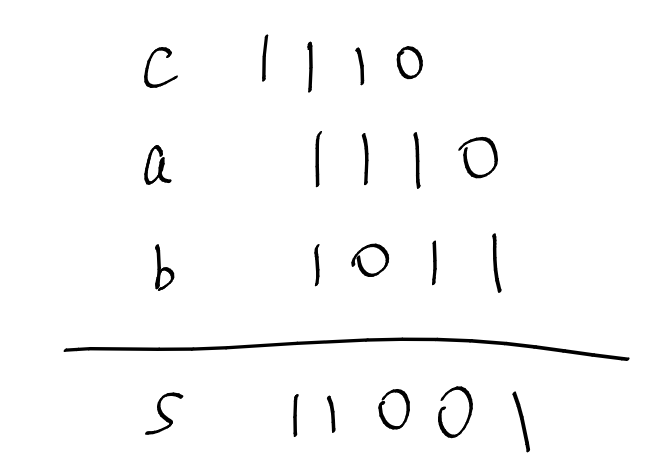 c 1 1 1 0
a 1 1 1 0
b 1 0 1 1
s 1 1 0 0 1